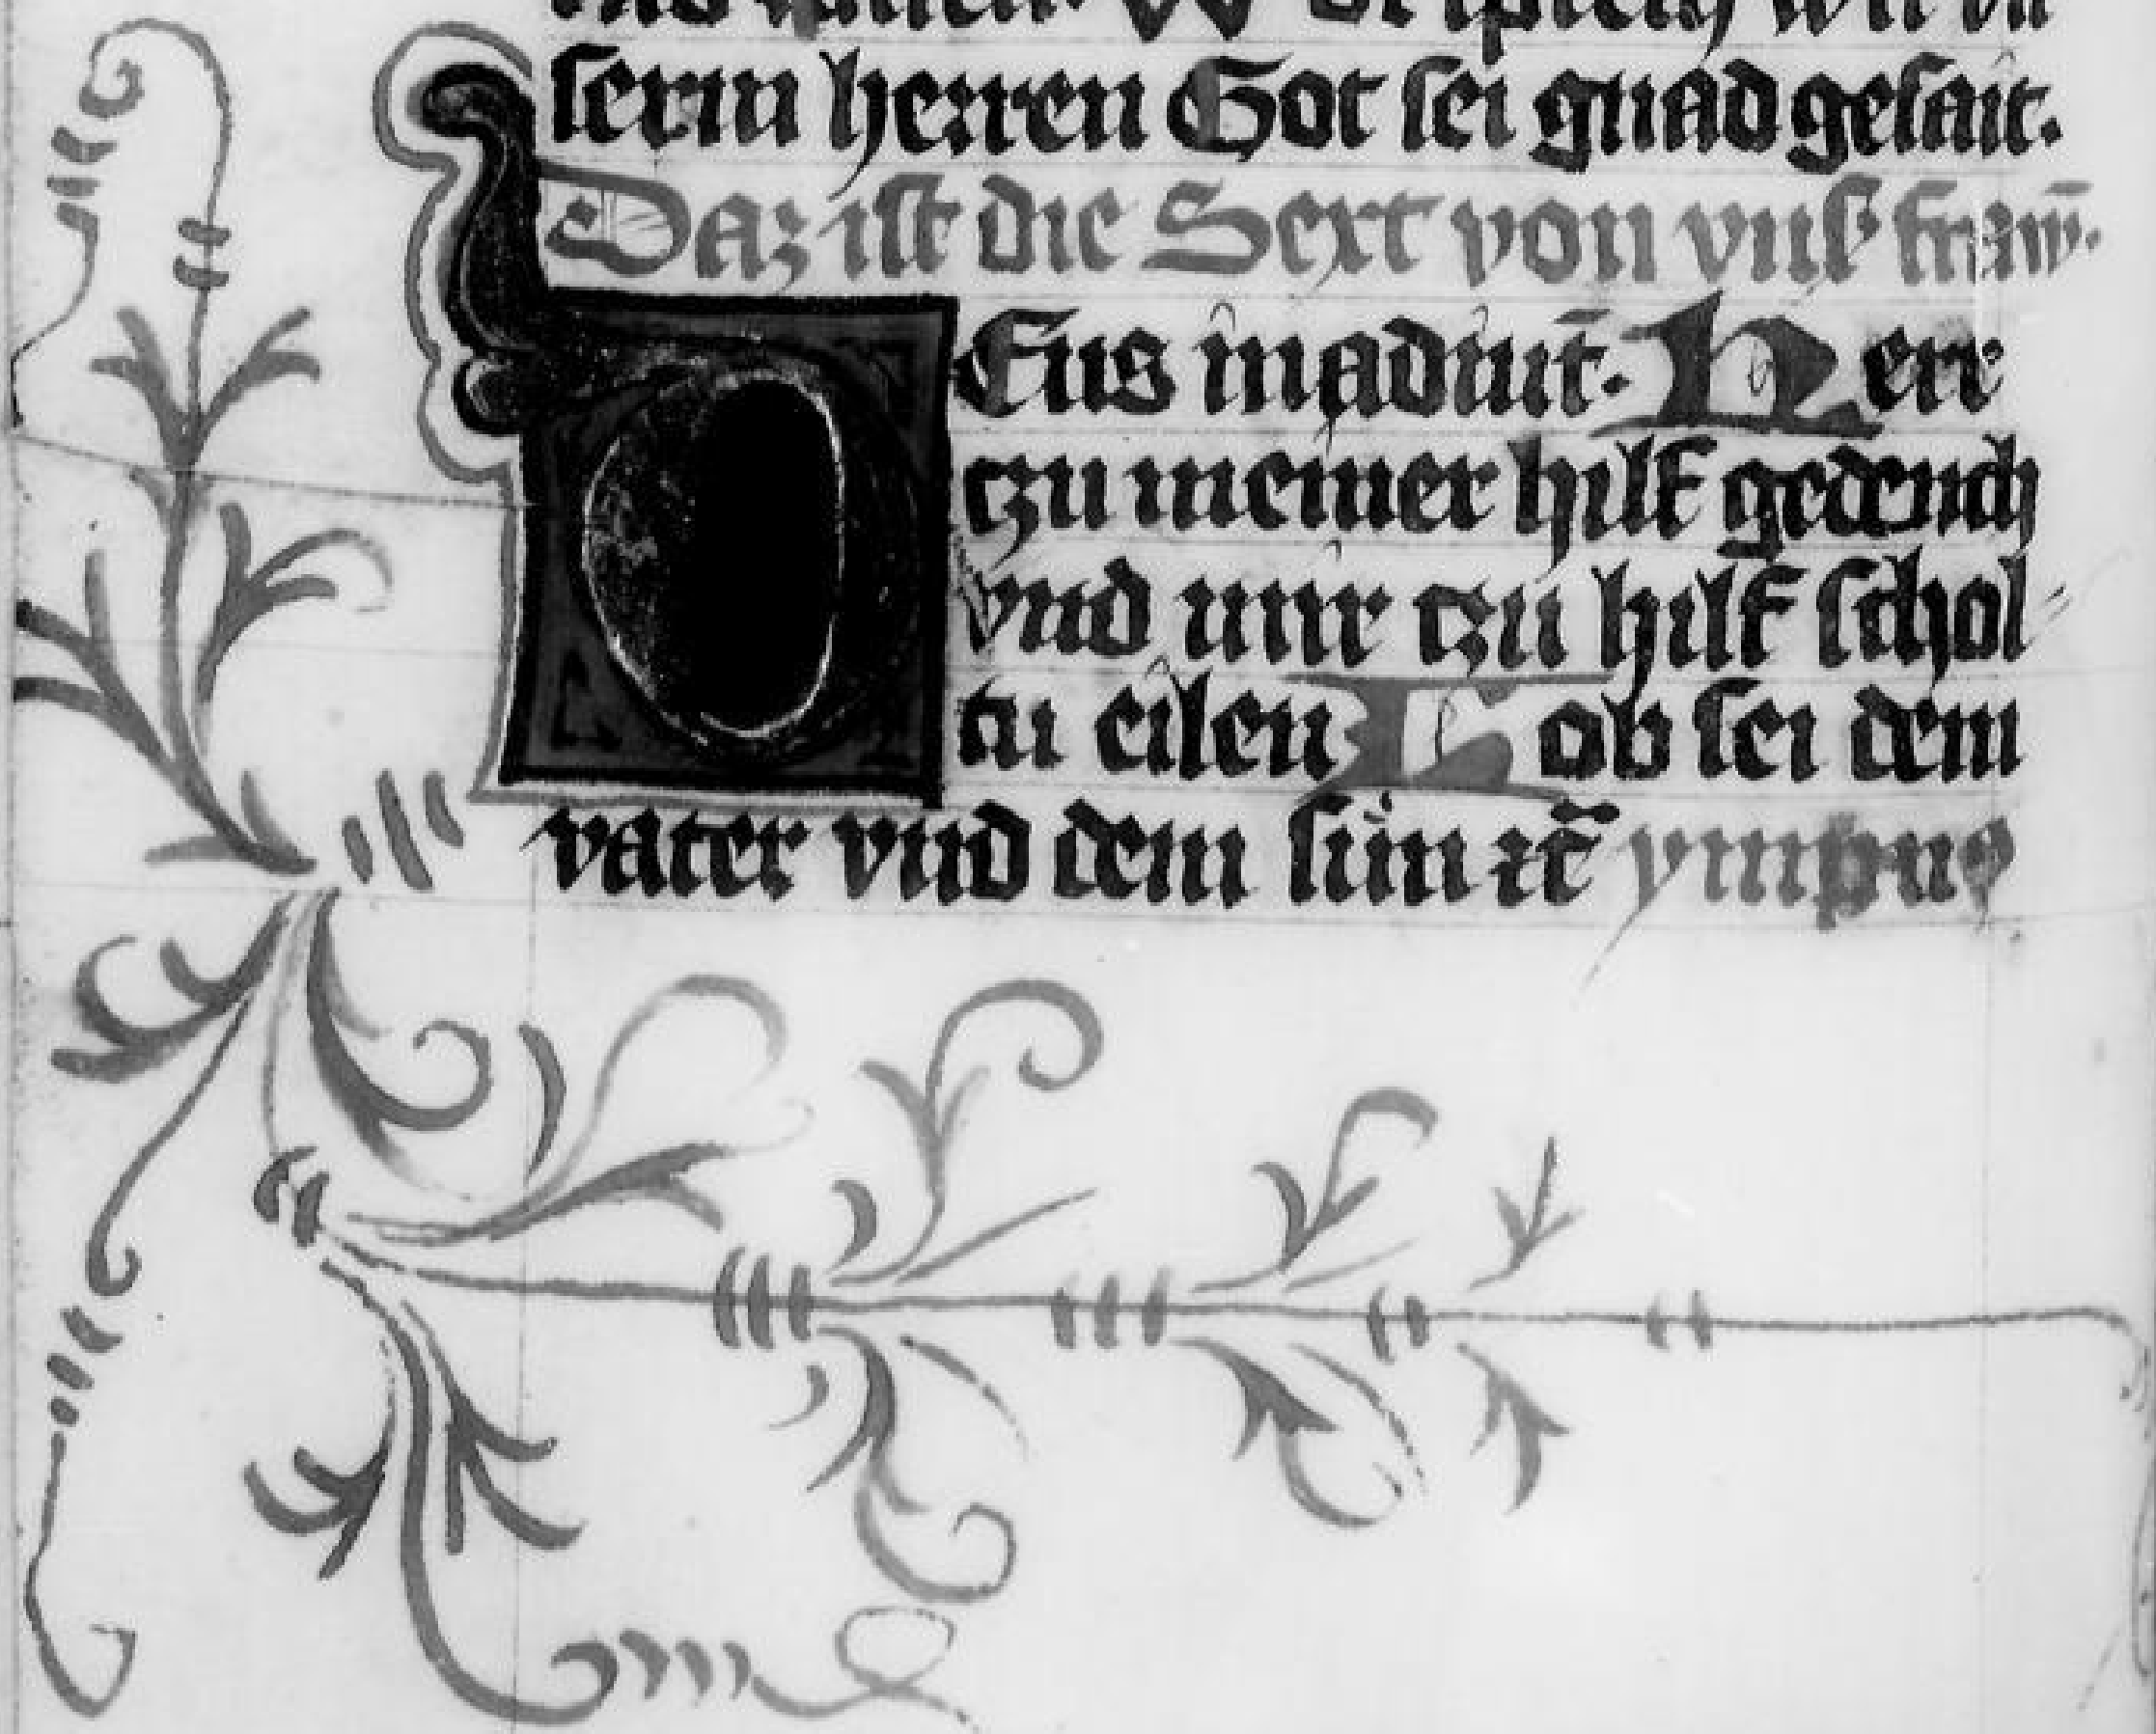 serm herren Got sei gnad gesait.
Daz ist die Sext von vnß fraw̄.
DEus in adiut̄. Herr
czu meiner hilf gedench
vnd mir czu hilf schol
tu eilen Lob sei dem
vater vnd dem sün ꝛc̄ ympnꝰ